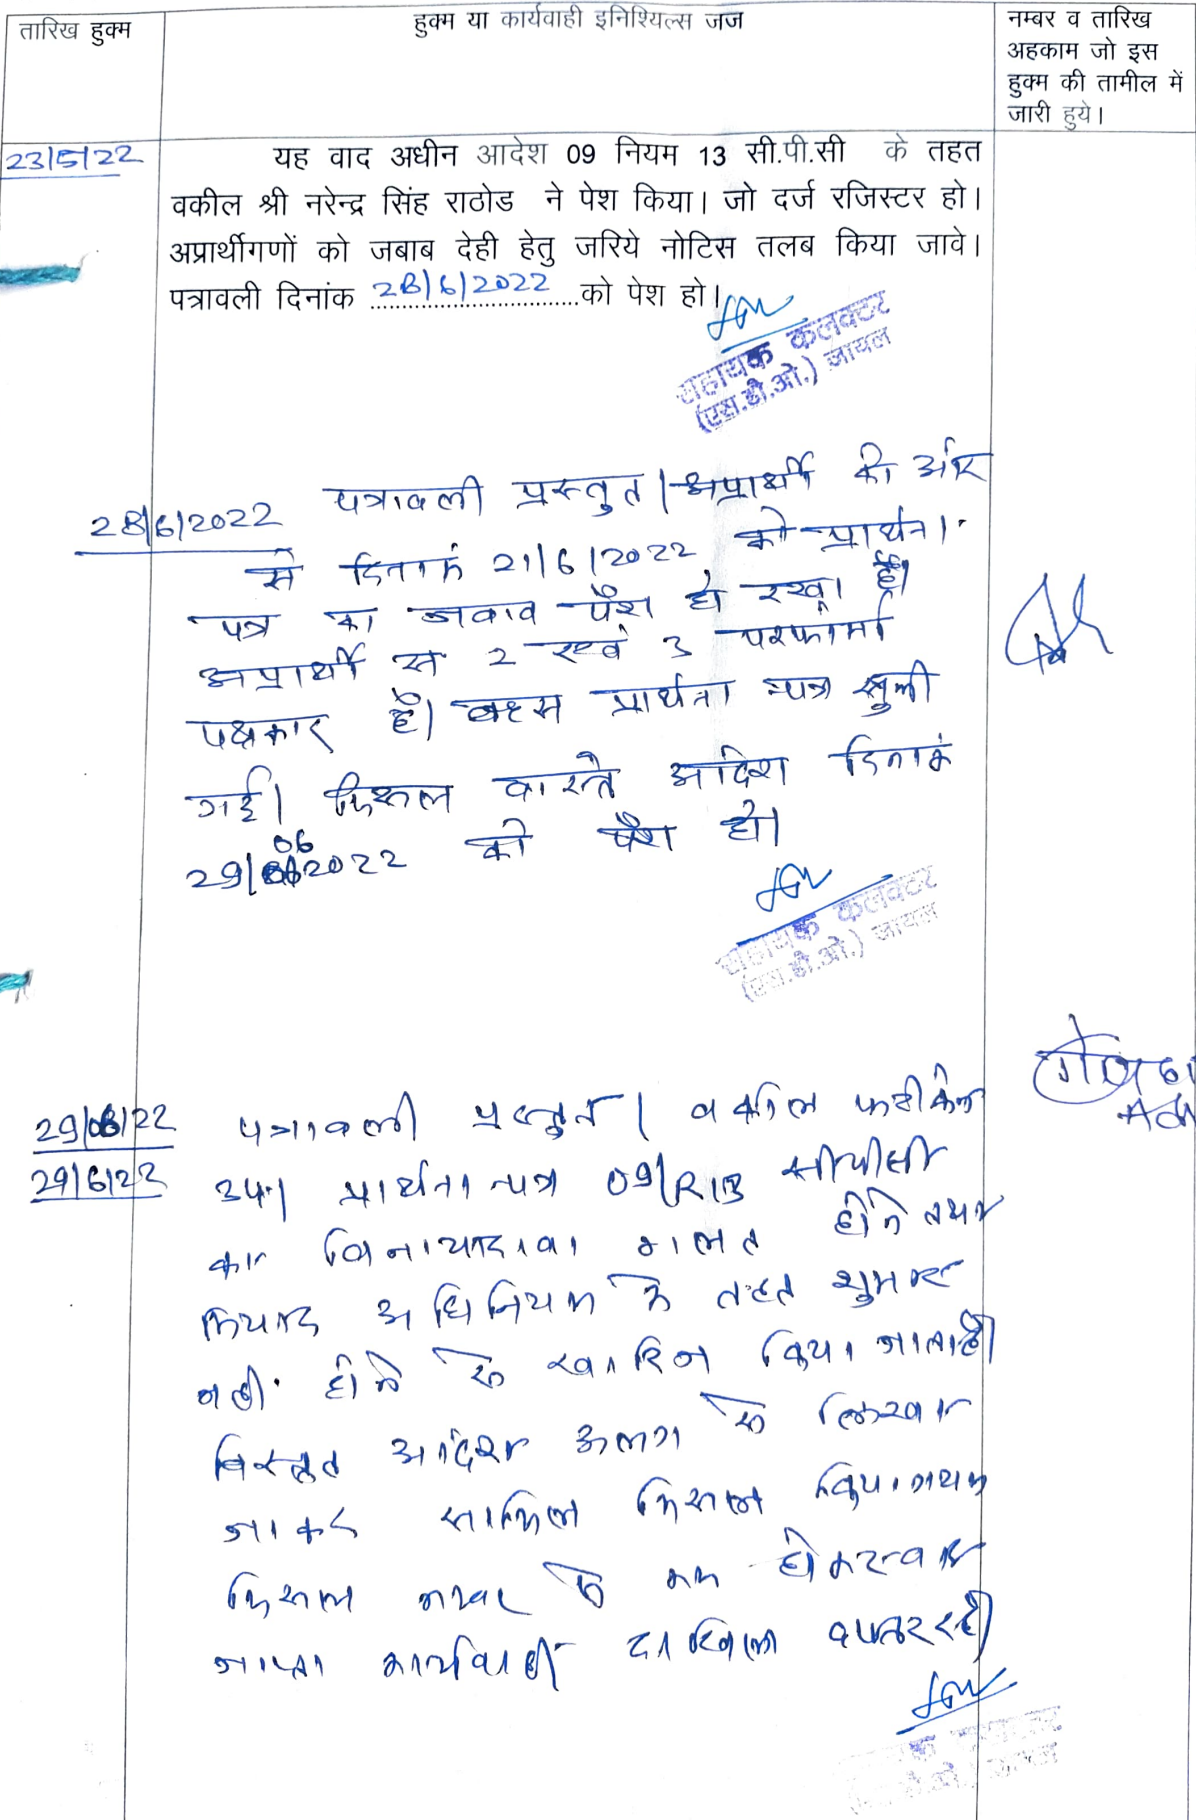 तारिख हुक्म
हुक्म या कार्यवाही इनिश्यिल्स जज
नम्बर व तारिख
अहकाम जो इस
हुक्म की तामील में
जारी हुये।
23/5/22
यह वाद अधीन आदेश 09 नियम 13 सी.पी.सी के तहत
वकील श्री नरेन्द्र सिंह राठोड ने पेश किया। जो दर्ज रजिस्टर हो।
अप्रार्थीगणों को जबाब देही हेतु जरिये नोटिस तलब किया जावे।
पत्रावली दिनांक 28/6/2022 को पेश हो।
सहायक कलक्टर
(एस.डी.ओ.) जायल
28/6/2022
पत्रावली प्रस्तुत। अप्रार्थी की और
से दिनाकं 21/6/2022 को प्रार्थना
पत्र का जवाव पैश हो रखा है।
अप्रार्थी स 2 एवं 3 परफोर्मा
पक्षकार है। बहस प्रार्थना पत्र सुनी
गई। मिसल वास्ते आदेश दिनाकं
29/06/2022 को पैश हो।
सहायक कलक्टर
(एस.डी.ओ.) जायल
29/06/22
29/6/22
पत्रावली प्रस्तुत। वकील फरीकेन
प्रार्थना पत्र 09/R13 सीपीसी
का गलत होने तथा
मियाद अधिनियम के तहत शुमार
नही होने से खारिज किया जाता है।
विस्तृत आदेश अलग से लिखा
जाकर सामिल मिसल किया गया
मिसल नम्बर से कम होकर बाद
कार्यवाही दाखिल दफ्तर रहे।